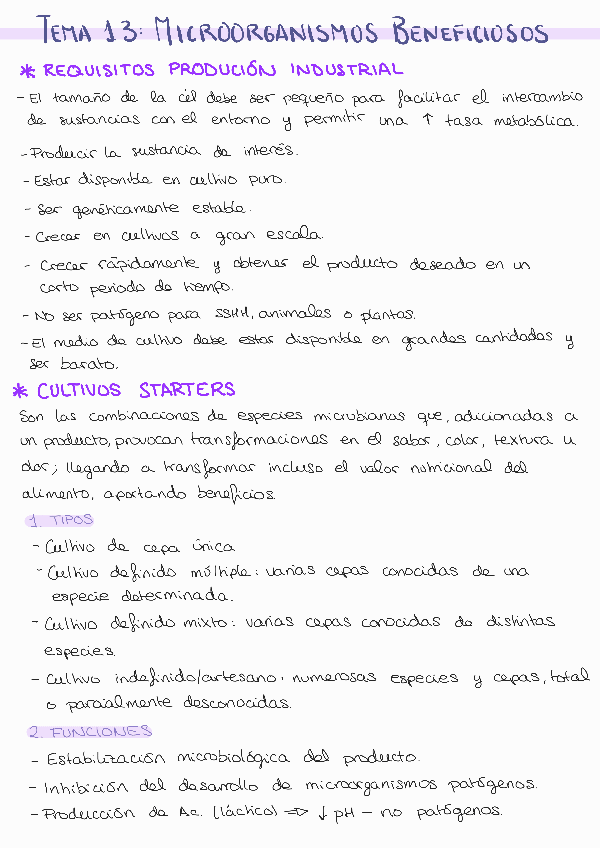 TEMA 13: MICROORGANISMOS BENEFICIOSOS
* REQUISITOS PRODUCIÓN INDUSTRIAL
- El tamaño de la cél debe ser pequeño para facilitar el intercambio
de sustancias con el entorno y permitir una ↑ tasa metabólica.
- Producir la sustancia de interés.
- Estar disponible en cultivo puro.
- Ser genéticamente estable.
- Crecer en cultivos a gran escala.
- Crecer rápidamente y obtener el producto deseado en un
corto periodo de tiempo.
- No ser patógeno para SSHH, animales o plantas.
- El medio de cultivo debe estar disponible en grandes cantidades y
ser barato.
* CULTIVOS STARTERS
Son las combinaciones de especies microbianas que, adicionadas a
un producto, provocan transformaciones en el sabor, color, textura u
olor; llegando a transformar incluso el valor nutricional del
alimento, aportando beneficios.
1. TIPOS
- Cultivo de cepa única
- Cultivo definido múltiple: varias cepas conocidas de una
especie determinada.
- Cultivo definido mixto: varias cepas conocidas de distintas
especies.
- Cultivo indefinido/artesano: numerosas especies y cepas, total
o parcialmente desconocidas.
2. FUNCIONES
- Estabilización microbiológica del producto.
- Inhibición del desarollo de microorganismos patógenos.
- Producción de Ac. (láctico) => ↓ pH - no patógenos.